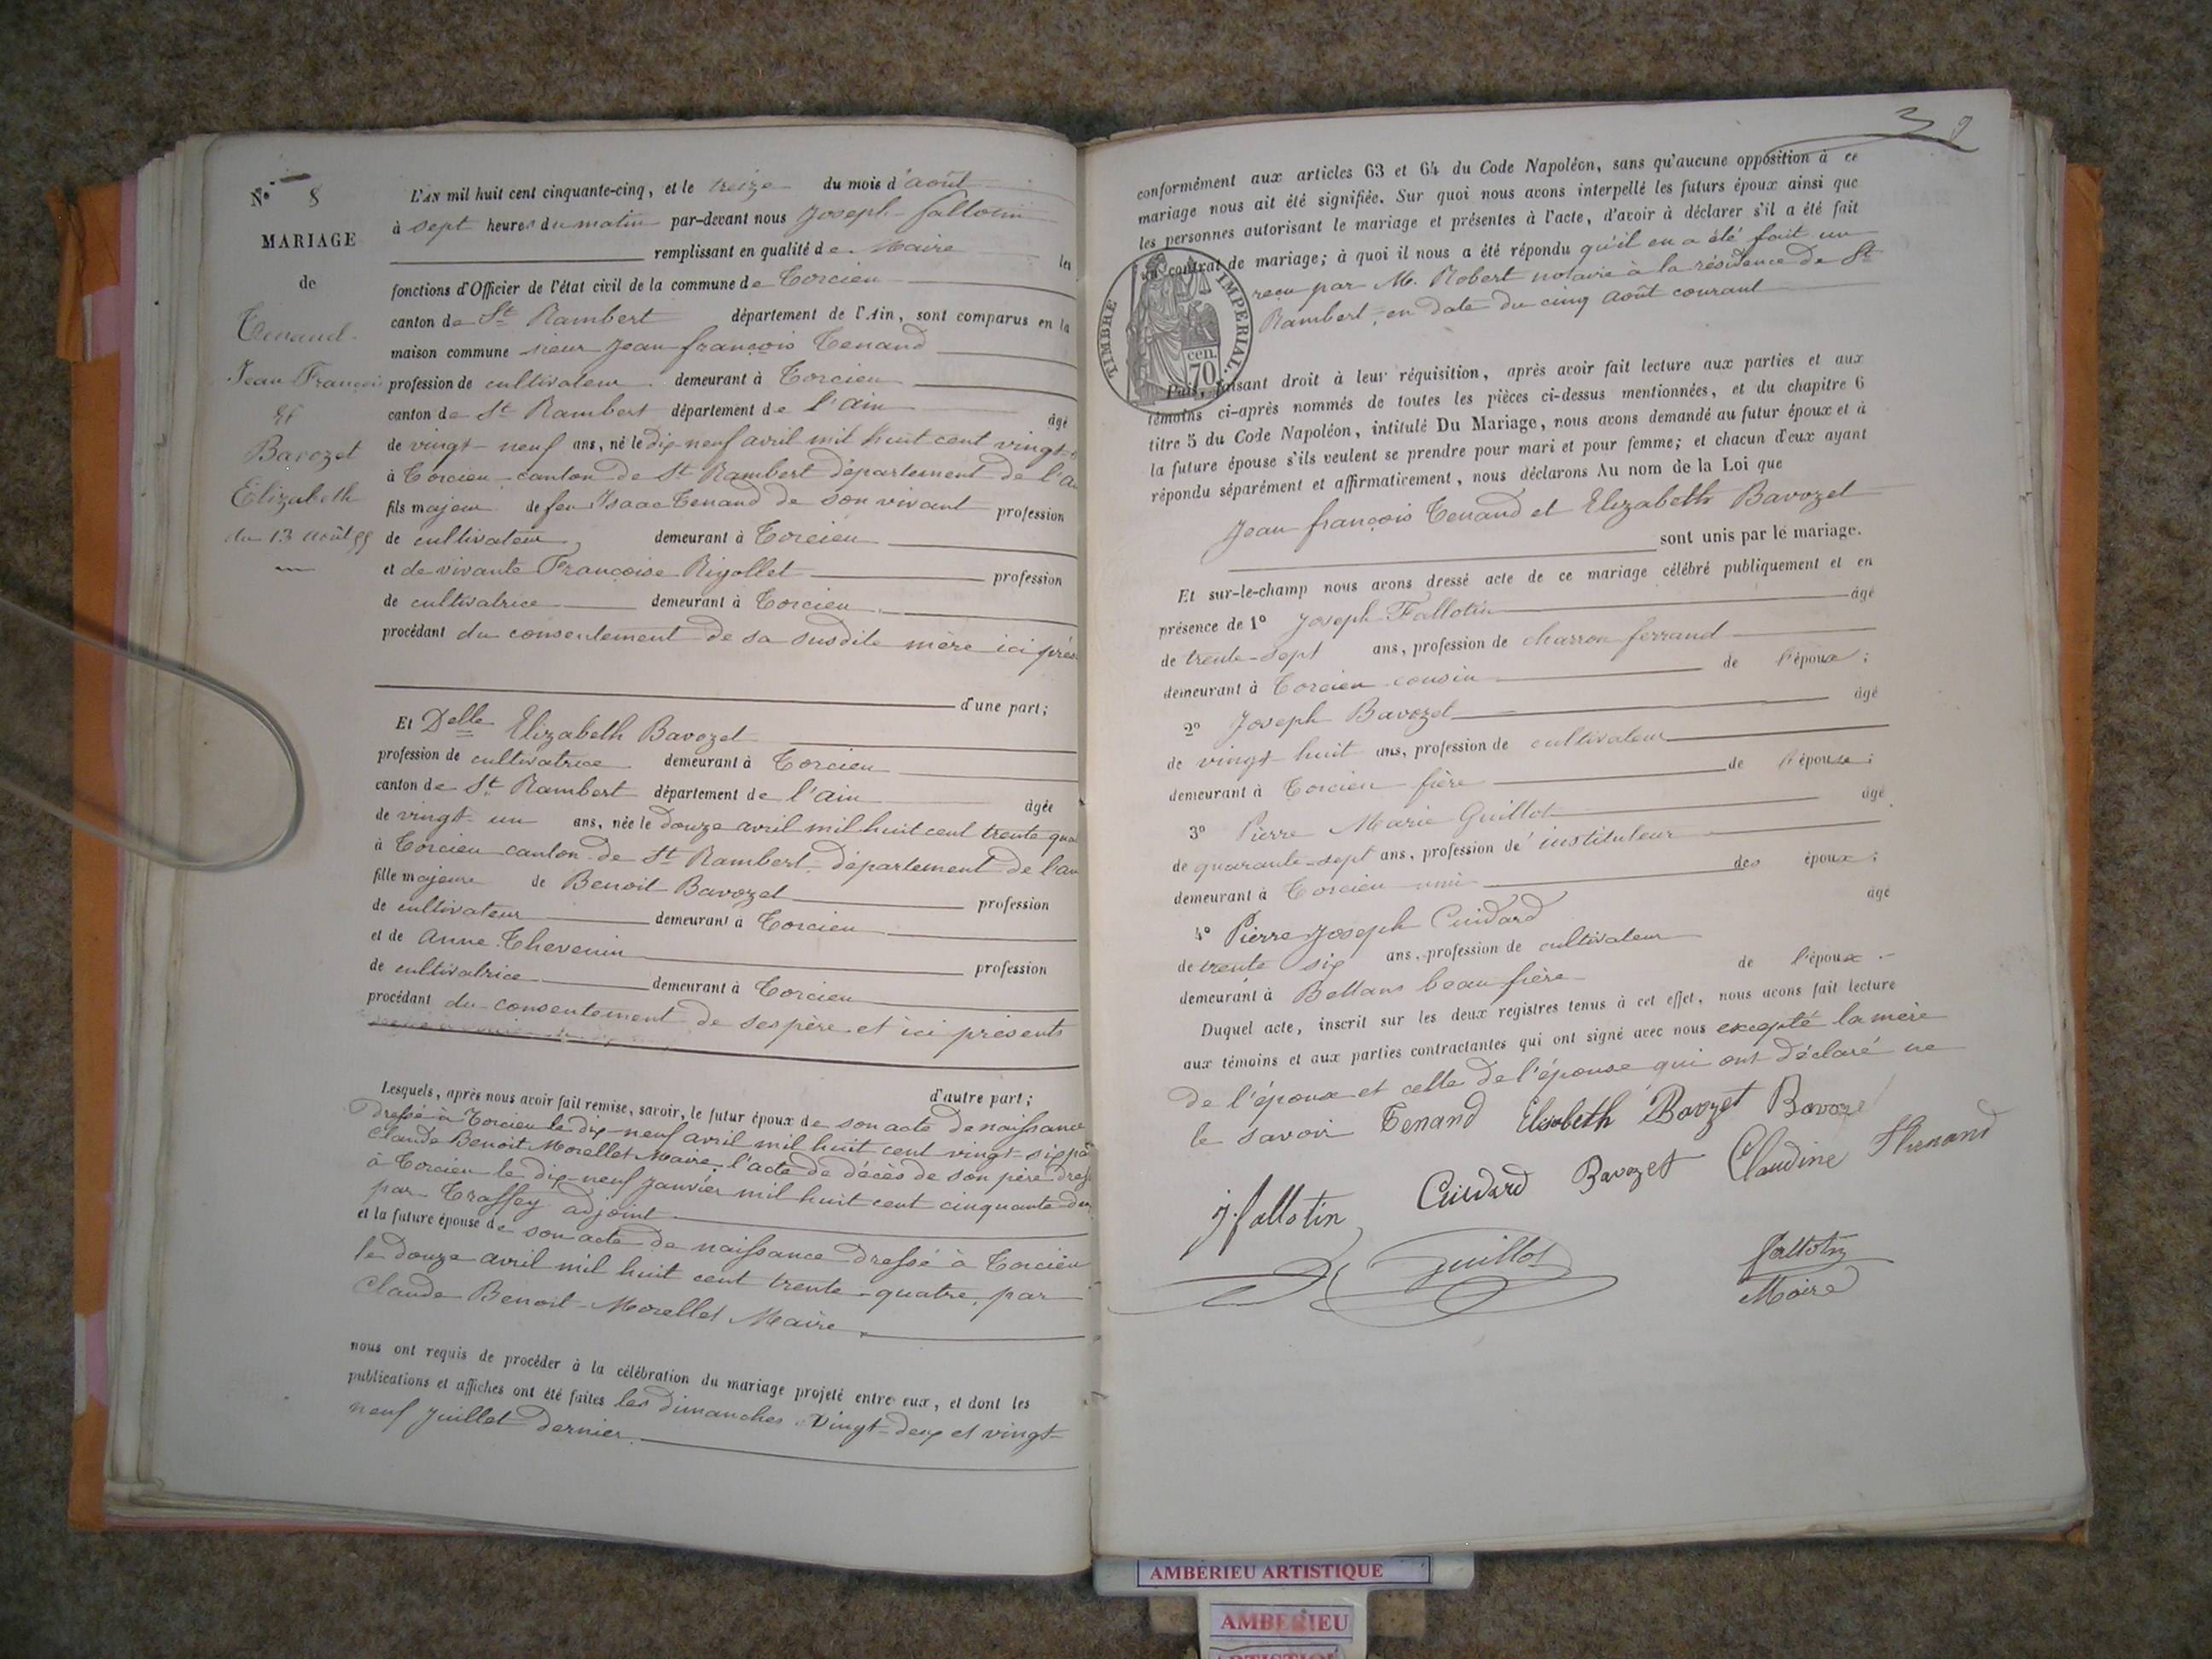 N° 8
MARIAGE
de
Tenand
Jean François
Et
Bavozet
Elizabeth
du 13 août 55
L'AN mil huit cent cinquante-cinq, et le treize du mois d'août
à sept heures du matin par-devant nous Joseph fallotin
remplissant en qualité de Maire les
fonctions d'Officier de l'état civil de la commune de Torcieu
canton de St Rambert département de l'Ain, sont comparus en la
maison commune sieur Jean françois Tenand
profession de cultivateur demeurant à Torcieu
canton de St Rambert département de l'ain âgé
de vingt-neuf ans, né le dix-neuf avril mil huit cent vingt-
à Torcieu canton de St Rambert département de l'a
fils majeur de feu Isaac Tenand de son vivant profession
de cultivateur demeurant à Torcieu
et de vivante Françoise Rigollet profession
de cultivatrice demeurant à Torcieu
procédant du consentement de sa susdite mère ici prés
d'une part;
Et Delle Elizabeth Bavozet
profession de cultivatrice demeurant à Torcieu
canton de St Rambert département de l'ain âgée
de vingt-un ans, née le douze avril mil huit cent trente qua
à Torcieu canton de St Rambert département de l'ain
fille majeure de Benoit Bavozet profession
de cultivateur demeurant à Torcieu
et de Anne Thevenin profession
de cultivatrice demeurant à Torcieu
procédant du consentement de ses père et ici présents
d'autre part;
Lesquels, après nous avoir fait remise, savoir, le futur époux de son acte de naissance
dressé à Torcieu le dix-neuf avril mil huit cent vingt-six pa
Claude Benoit Morellet Maire, l'acte de décès de son père dres
à Torcieu le dix-neuf janvier mil huit cent cinquante-deu
par Traffey adjoint
et la future épouse de son acte de naissance dressé à Torcieu
le douze avril mil huit cent trente-quatre, par
Claude Benoit Morellet Maire
nous ont requis de procéder à la célébration du mariage projeté entre eux, et dont les
publications et affiches ont été faites les dimanches vingt-deux et vingt-
neuf juillet dernier
conformément aux articles 63 et 64 du Code Napoléon, sans qu'aucune opposition à ce
mariage nous ait été signifiée. Sur quoi nous avons interpellé les futurs époux ainsi que
les personnes autorisant le mariage et présentes à l'acte, d'avoir à déclarer s'il a été fait
un contrat de mariage; à quoi il nous a été répondu qu'il en a été fait un
reçu par M. Robert notaire à la résidence de St
Rambert, en date du cinq août courant
TIMBRE IMPERIAL
70 cen.
Puis, faisant droit à leur réquisition, après avoir fait lecture aux parties et aux
témoins ci-après nommés de toutes les pièces ci-dessus mentionnées, et du chapitre 6
titre 5 du Code Napoléon, intitulé Du Mariage, nous avons demandé au futur époux et à
la future épouse s'ils veulent se prendre pour mari et pour femme; et chacun d'eux ayant
répondu séparément et affirmativement, nous déclarons Au nom de la Loi que
Jean françois Tenand et Elizabeth Bavozet
sont unis par le mariage.
Et sur-le-champ nous avons dressé acte de ce mariage célébré publiquement et en
présence de 1° Joseph Fallotin âgé
de trente-sept ans, profession de charron ferrand
demeurant à Torcieu cousin de l'époux;
2° Joseph Bavozet âgé
de vingt huit ans, profession de cultivateur
demeurant à Torcieu frère de l'épouse;
3° Pierre Marie Guillot âgé
de quarante-sept ans, profession d'instituteur
demeurant à Torcieu ami des époux;
4° Pierre Joseph Cuidard âgé
de trente six ans, profession de cultivateur
demeurant à Bettans beau frère de l'époux.
Duquel acte, inscrit sur les deux registres tenus à cet effet, nous avons fait lecture
aux témoins et aux parties contractantes qui ont signé avec nous excepté la mère
de l'époux et celle de l'épouse qui ont déclaré ne
le savoir Tenand Elisabeth Bavozet Bavozet
J. fallotin Cuidard Bavozet Claudine Thenand
Guillot fallotin
Maire
AMBÉRIEU ARTISTIQUE
AMBERIEU
ARTISTIQUE